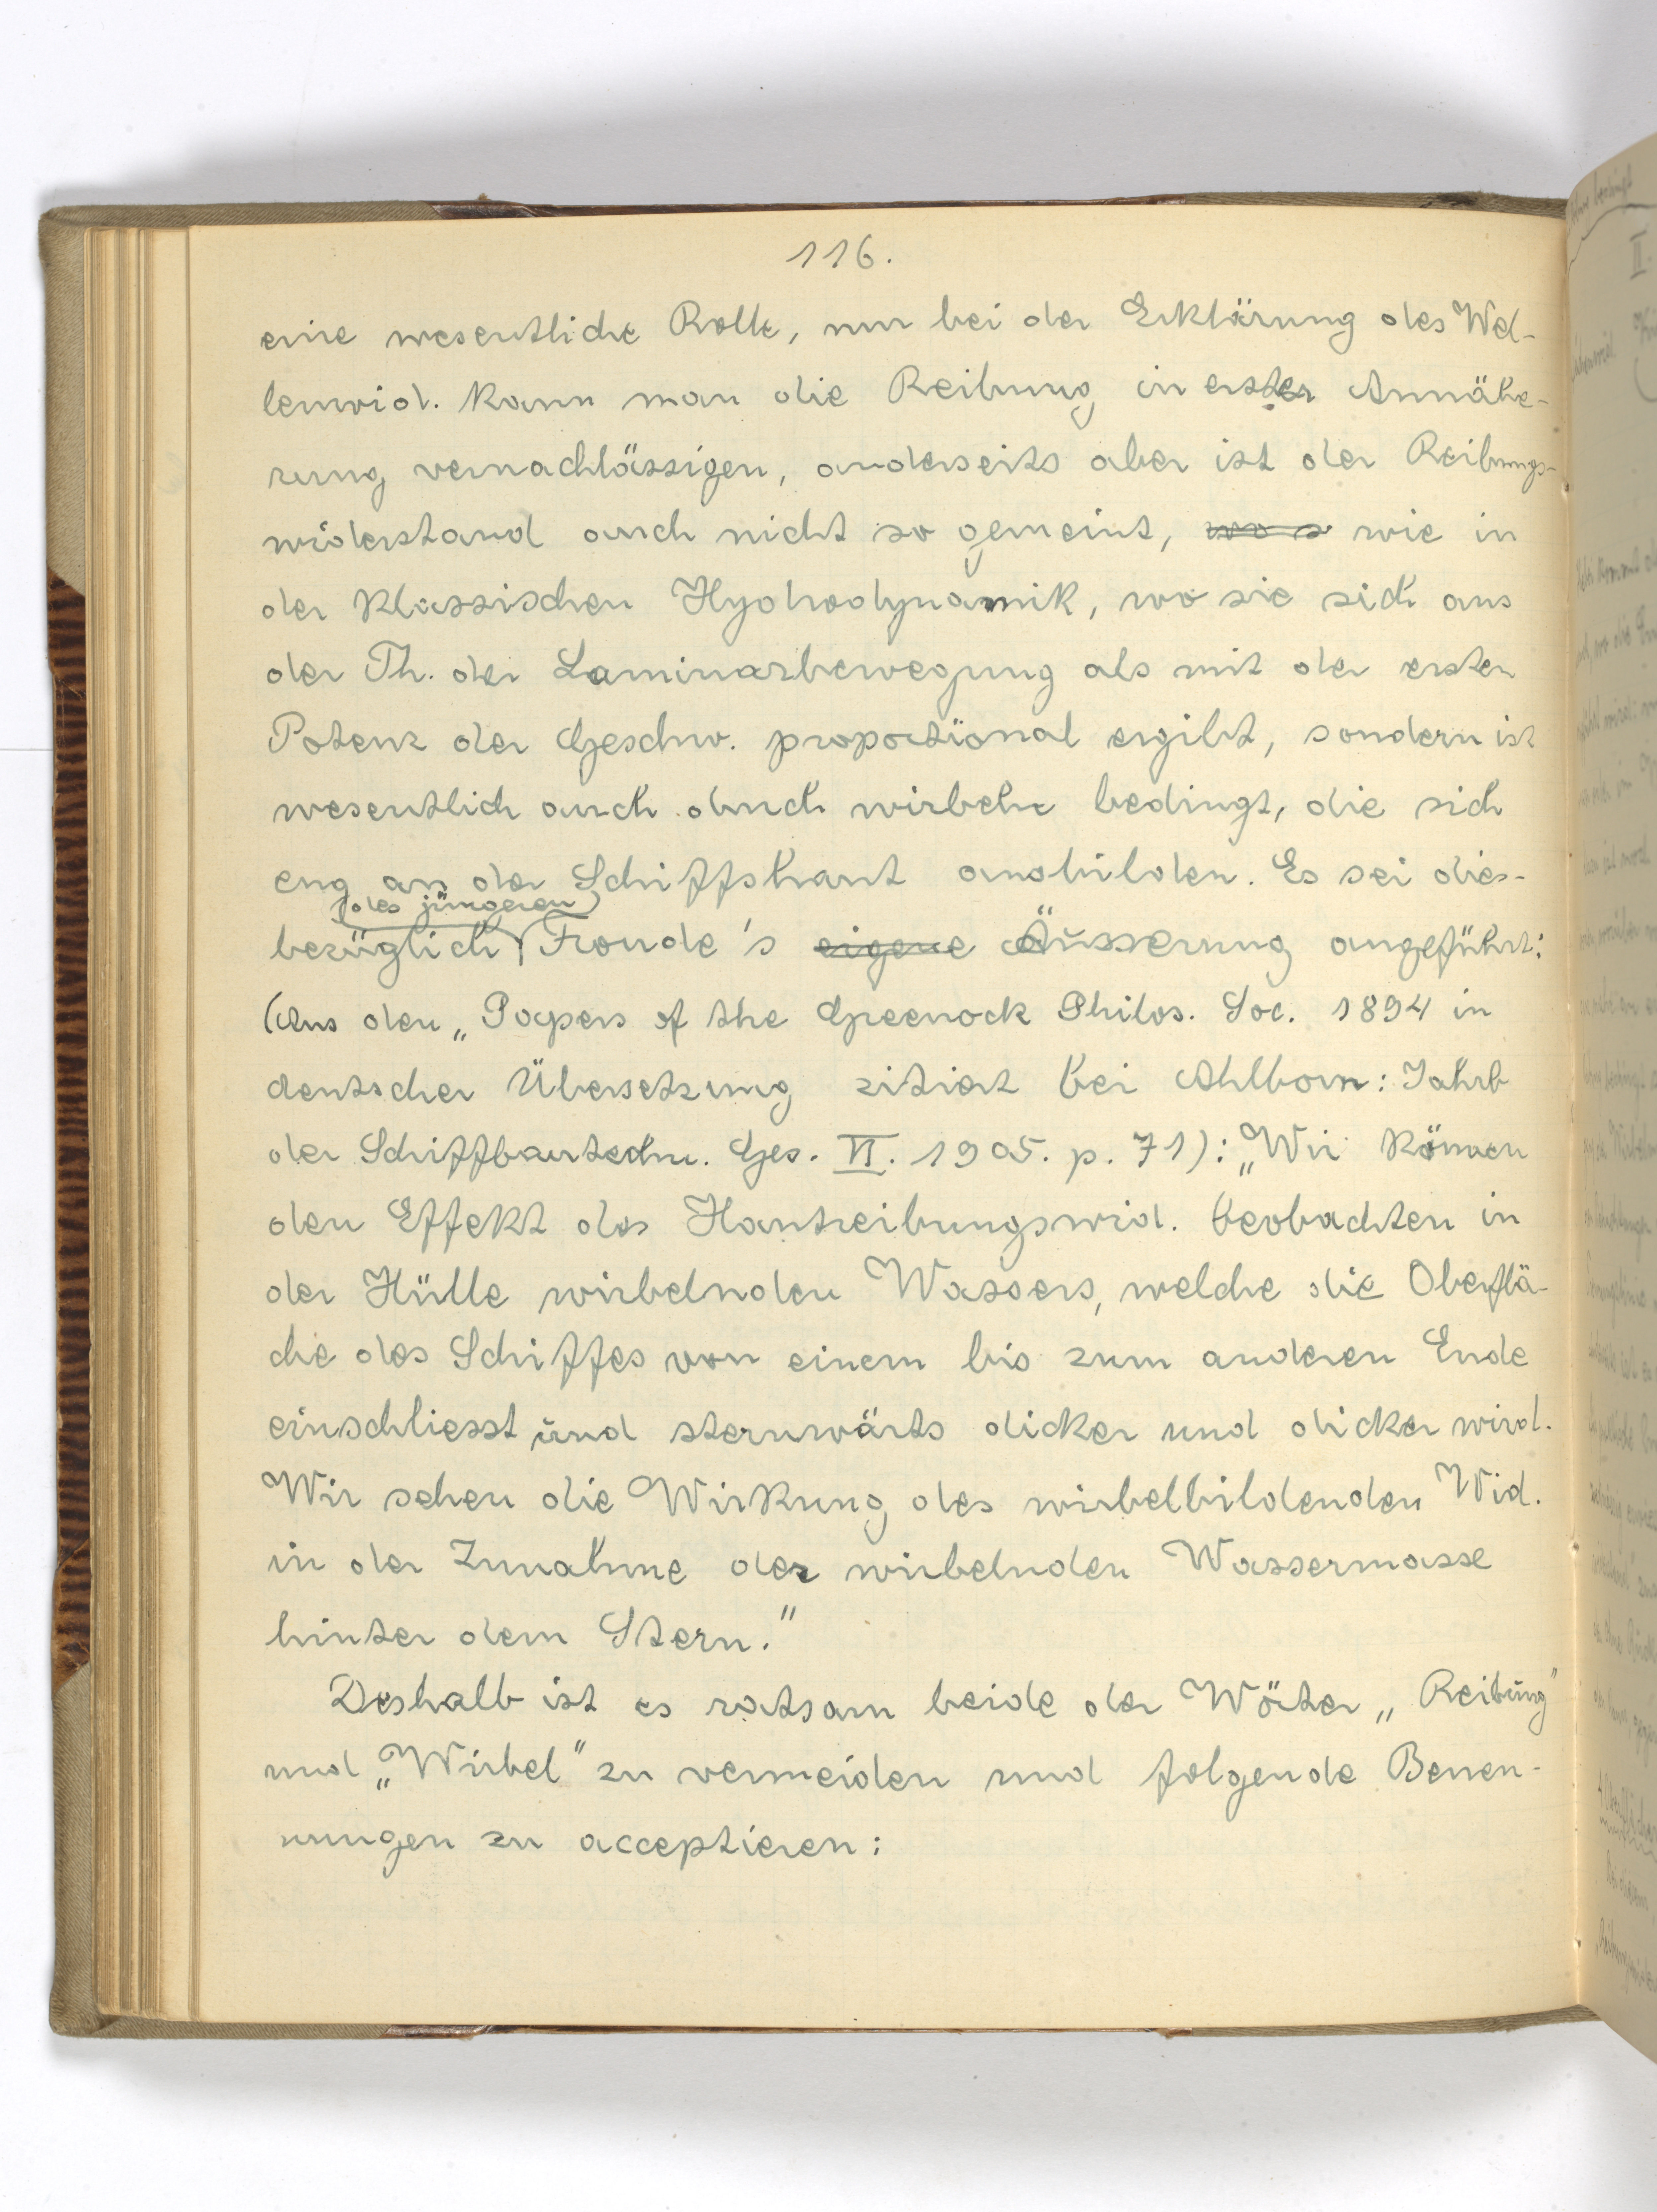 116.
eine wesentliche Rolle, nur bei der Erklärung des Wel-
lenwid. kann man die Reibung in erster Annähe-
rung vernachlässigen, anderseits aber ist der Reibungs-
widerstand auch nicht so gemeint, wo s wie in
der klassischen Hydrodynamik, wo sie sich aus
der Th. der Laminarbewegung als mit der ersten
Potenz der Geschw. proportional ergibt, sondern ist
wesentlich auch durch wirbeln bedingt, die sich
eng an der Schiffshaut ausbilden. Es sei dies-
(des jüngeren)
bezüglich Froude's eigene Äusserung angeführt:
(Aus den „Papers of the Greenock Philos. Soc. 1894 in
deutscher Übersetzung zitiert bei Ahlborn: Jahrb
der Schiffbautechn. Ges. VI. 1905. p. 71): „Wir können
den Effekt des Hautreibungswid. beobachten in
der Hülle wirbelnden Wassers, welche die Oberflä-
che des Schiffes von einem bis zum anderen Ende
einschliesst und sternwärts dicker und dicker wird.
Wir sehen die Wirkung des wirbelbildenden Wid.
in der Zunahme der wirbelnden Wassermasse
hinter dem Stern."
Deshalb ist es ratsam beide der Wörter „Reibung"
und „Wirbel" zu vermeiden und folgende Benen-
nungen zu acceptieren:
II.